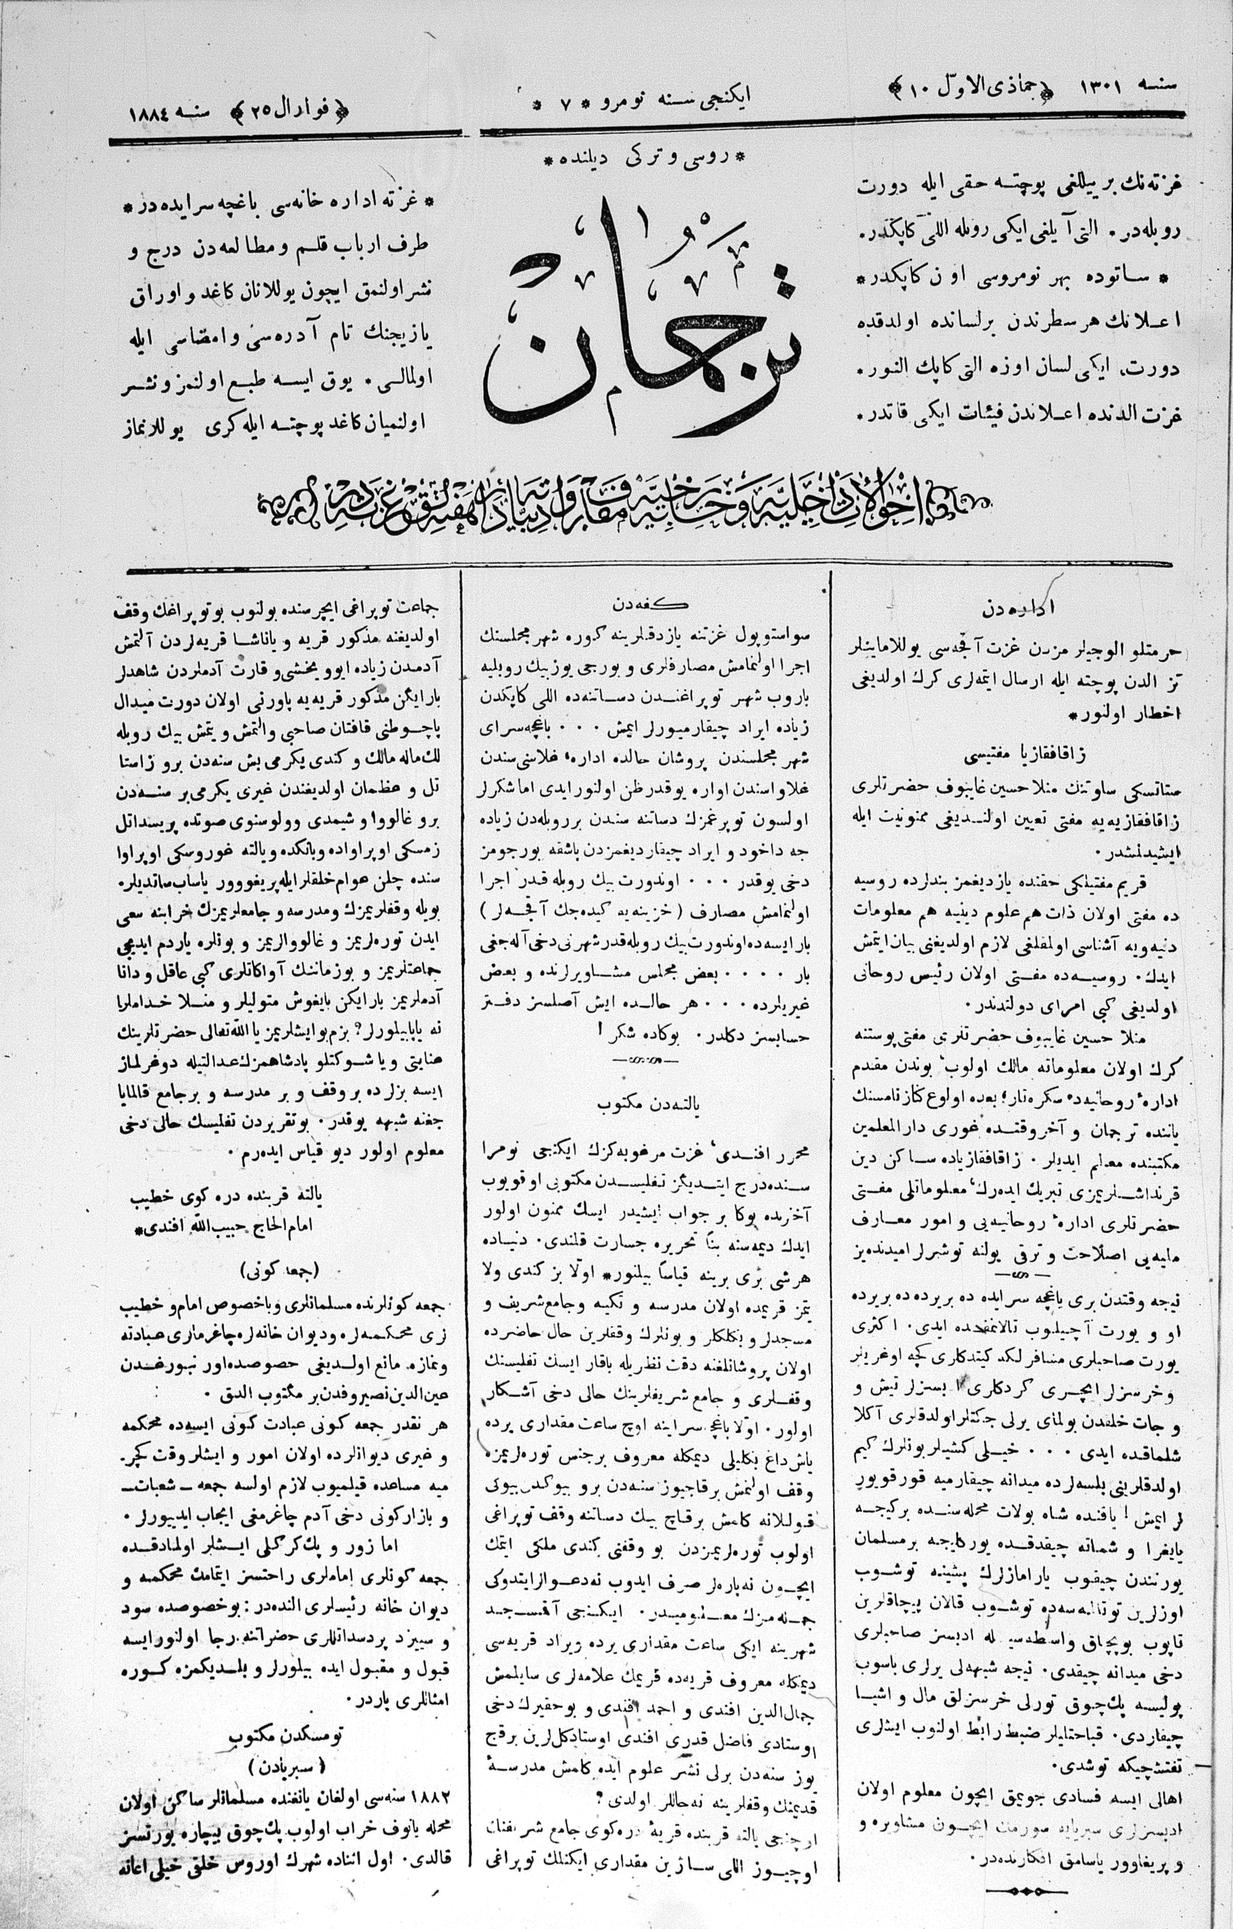 سنه ۱۳۰۱ ﴿جماذی الاوّل ۱۰﴾
ایکنجی سنه نومرو * ۷ *
﴿فوارال ۲۵﴾ سنه ۱۸۸٤
* روسی و ترکی دیلنده *
غزته‌نك بر ییللغی پوچته حقی ایله دورت
روبله‌در. التی آیلغی ایکی روبله اللی کاپکدر.
* ساتوده بهر نومروسی اون کاپکدر *
اعلانك هر سطرندن بر لسانده اولدقده
دورت، ایکی لسان اوزه التی کاپك النور.
غزت الدنده اعلاندن فیئات ایکی قاتدر.
ترجمان
* غزته اداره خانه‌سی باغچه سرایده‌در *
طرف ارباب قلم و مطالعه‌دن درج و
نشر اولنمق ایچون یوللانان کاغد و اوراق
یازیجنك تام آدره‌سی و امضاسی ایله
اولمالی. یوق ایسه طبع اولنمز و نشر
اولنمیان کاغد پوچته ایله کری یوللانماز
اداره‌دن
حرمتلو الوجیلرمزدن غزت آقچه‌سی یوللامایتلر
تز الدن پوچته ایله ارسال ایتمه‌لری کرك اولدیغی
اخطار اولنور *
زاقافقازیا مفتیسی
ستاتسکی ساوتنك منلا حسین غایبوف حضرتلری
زاقافقازیه‌یه مفتی تعیین اولندیغی ممنونیت ایله
ایشیدلمشدر.
قریم مفتیلکی حقنده یازدیغمز بندلرده روسیه
ده مفتی اولان ذات هم علوم دینیه هم معلومات
دنیویه آشناسی اولمقلغی لازم اولدیغی بیان ایتمش
ایدك. روسیه‌ده مفتی اولان رئیس روحانی
اولدیغی کبی امرای دولتدندر.
منلا حسین غایبوف حضرتلری مفتی پوستنه
کرك اولان معلوماته مالك اولوب بوندن مقدم
یاننده ترجمان و آخر وقتده غوری دار المعلمین
مکتبنده معلم ایدیلر. زاقافقازیاده ساکن دین
قرنداشلریمزی تبریك ایده‌رك معلوماتلی مفتی
حضرتلری ادارهٔ روحانیه‌یی و امور معارف
ملیه‌یی اصلاحت و ترقی یولنه توشرلر امیدنده‌یز
نیجه وقتدن بری باغچه سرایده ده بر یرده ده بر یرده
او و یورت آچیلوب تالانمقده ایدی. اکثری
و جات خلقدن بولمای یرلی جکتلر اولدقلری آکلا
شلماقده ایدی . . . خیلی کشیلر بونلرك کیم
اولدقلرینی بلسه‌لرده میدانه چیقارمیه قورقویور
لر ایمش! یاقنده شاه بولات محله‌سنده بر کیجه
دخی میدانه چیقدی. نیجه شبهه‌لی یرلری باسوب
پولیسه پك چوق تورلی خرسزلق مال و اشیا
چیقاردی. قباحتلیلر ضبط رابط اولنوب ایشلری
تفتیشچیکه توشدی.
اهالی ایسه فسادی جویمق ایچون معلوم اولان
ادبسزلری سبریایه سورمك ایچون مشاوره و
و پریغاوور یاسامق افکارنده‌در.
کفه‌دن
سواستوپول غزتنه یازدقلرینه کوره شهر مجلسنك
اجرا اولنمامش مصارفلری و بورجی یوز بیك روبلیه
باروب شهر توپراغندن دساتنه‌ده اللی کاپکدن
زیاده ایراد چیقارمیورلر ایمش . . . باغچه‌سرای
شهر مجلسندن پروشان حالده اداره، غلاسی‌سندن
غلاواسندن اواره یوقدر ظن اولنور ایدی اما شکرلر
اولسون توپرغمزك دساتنه سندن بر روبله‌دن زیاده
جه داخود و ایراد چیقاردیغمزدن باشقه بورجومز
دخی یوقدر . . . اوندورت بیك روبله قدر اجرا
اولنمامش مصارف ( خزینه‌یه کیده‌جك آقچه‌لر )
بار ایسه‌ده اوندورت بیك روبله قدر شهرنی دخی آله‌جغی
بار . . . . بعض مجلس مشاویرلرنده و بعض
غیریلرده . . . هر حالده ایش آصلسز دفتر
حسابسز دکلدر. بوکاده شکر!
یالته‌دن مکتوب
محرر افندی، غزت مرغوبه‌کزك ایکنجی نومرا
سنده درج ایتدیگز تفلیسدن مکتوبی اوقویوب
آخرنده بوکا بر جواب ایشیدر ایسك ممنون اولور
ایدك دیمه‌سنه بناً تحریره جسارت قلندی. دنیاده
هر شی بری برینه قیاساً بیلنور * اوّلا بز کندی ولا
یتمز قریمده اولان مدرسه و تکیه و جامع شریف و
مسجدلر و بونلرك وقفلرین حال حاضرده
اولان پروشانلغنه دقت نظریله باقار ایسك تفلیسنك
وقفلری و جامع شریفلرینك حالی دخی آشکار
اولور. اوّلا باغچه سراینه اوچ ساعت مقداری یرده
وقف اولنمش بر قاچیوز سنه‌دن برو
اولوب توره‌لریمزدن بو وقفنی کندی ملکی ایتمك
ایچون نه پاره‌لر صرف ایدوب نه دعوالر ایتدوکی
جمله‌مزك معلومیدر. ایکنجی آقمسجد
شهرینه ایکی ساعت مقداری یرده ویراد قریه‌سی
دیمکله معروف قریه‌ده قریمك علامه‌لری سایلمش
جمال‌الدین افندی و احمد افندی و بو حقیرك دخی
اوستادی فاضل قدری افندی
یوز سنه‌دن برلی نشر علوم ایده کلمش مدرسهٔ
قدیمنك وقفلرینه نه حاللر اولدی؟
اوچنجی یالته قربنده قریهٔ دره‌کوی جامع شریفنك
اوچیوز اللی ساژین مقداری ایکنلك توپراغی
جماعت توپراغی ایچرسنده بولنوب بو توپراغك وقف
اولدیغنه مذکور قریه و یاناشا قریه‌لردن آلتمش
آدمدن زیاده ایو و یخشی و قارت آدملردن شاهدلر
بار ایکن مذکور قریه‌یه پاورنی اولان دورت میدال
لك ماله مالك و کندی یکرمی بش سنه‌دن برو زاستا
تل و عظمان اولدیغندن غیری یکرمی بر سنه‌دن
برو غالووا و شیمدی وولوسنوی صوتده پریسداتل
زمسکی اوپراواده و بانکده و یالته غوروسکی اوپراوا
سنده چلن عوام خلقلر ایله پریغوور یاساب ساتدیلر.
بویله وقفلریمزك و مدرسه و جامعلریمزك خرابنه سعی
ایدن توره‌لریمز و غالووالریمز و بونلره یاردم ایدیجی
جماعتلریمز و بو زماننك آووکاتلری کبی عاقل و دانا
آدملریمز بار ایکن بایغوش متولیلر و منلا خداملرلا
نه یاپابیلورلر؟ بزم بو ایشلریمز یا الله تعالی حضرتلرینك
عنایتی و یا شوکتلو پادشاهمزك عدالتیله دوغرلماز
ایسه بزلرده بر وقف و بر مدرسه و بر جامع قالمایا
جغنه شبهه یوقدر. بو تقریردن تفلیسك حالی دخی
معلوم اولور دیو قیاس ایده‌رم.
یالته قربنده دره کوی خطیب
امام الحاج حبیب الله افندی *
(جمعه کونی)
جمعه کونلرنده مسلمانلری و باخصوص امام و خطیب
لری محکمه‌لره و دیوان خانه‌لره چاغرمالری عبادته
و نمازه مانع اولدیغی خصوصده
عین‌الدین نصیروفدن بر مکتوب الدق.
هر نقدر جمعه کونی عبادت کونی ایسه‌ده محکمه
و غیری دیوانلرده اولان امور و ایشلر وقت کچر
میه مساعده قیلمیوب لازم اولسه جمعه ـ شعبات ـ
و بازار کونی دخی آدم چاغرمغی ایجاب ایدیورلر.
اما زور و پك کرکلی ایشلر اولمادقده
جمعه کونلری امام‌لری راحتسز ایتمامك محکمه و
دیوان خانه رئیسلری النده‌در: بو خصوصده سود
و سییزد پرسداتللری حضراتنه رجا اولنور ایسه
قبول و مقبول ایده بیلورلر و بلدیکمزه کوره
امثالری باردر.
تومسکدن مکتوب
(سبریادن)
۱۸۸۲ سنه‌سی اولغان یانغنده مسلمانلر ساکن اولان
محله یانوف خراب اولوب پك چوق بیچاره یورتسز
قالدی. اول اثناده شهرك اوروس خلقی خیلی اعانه